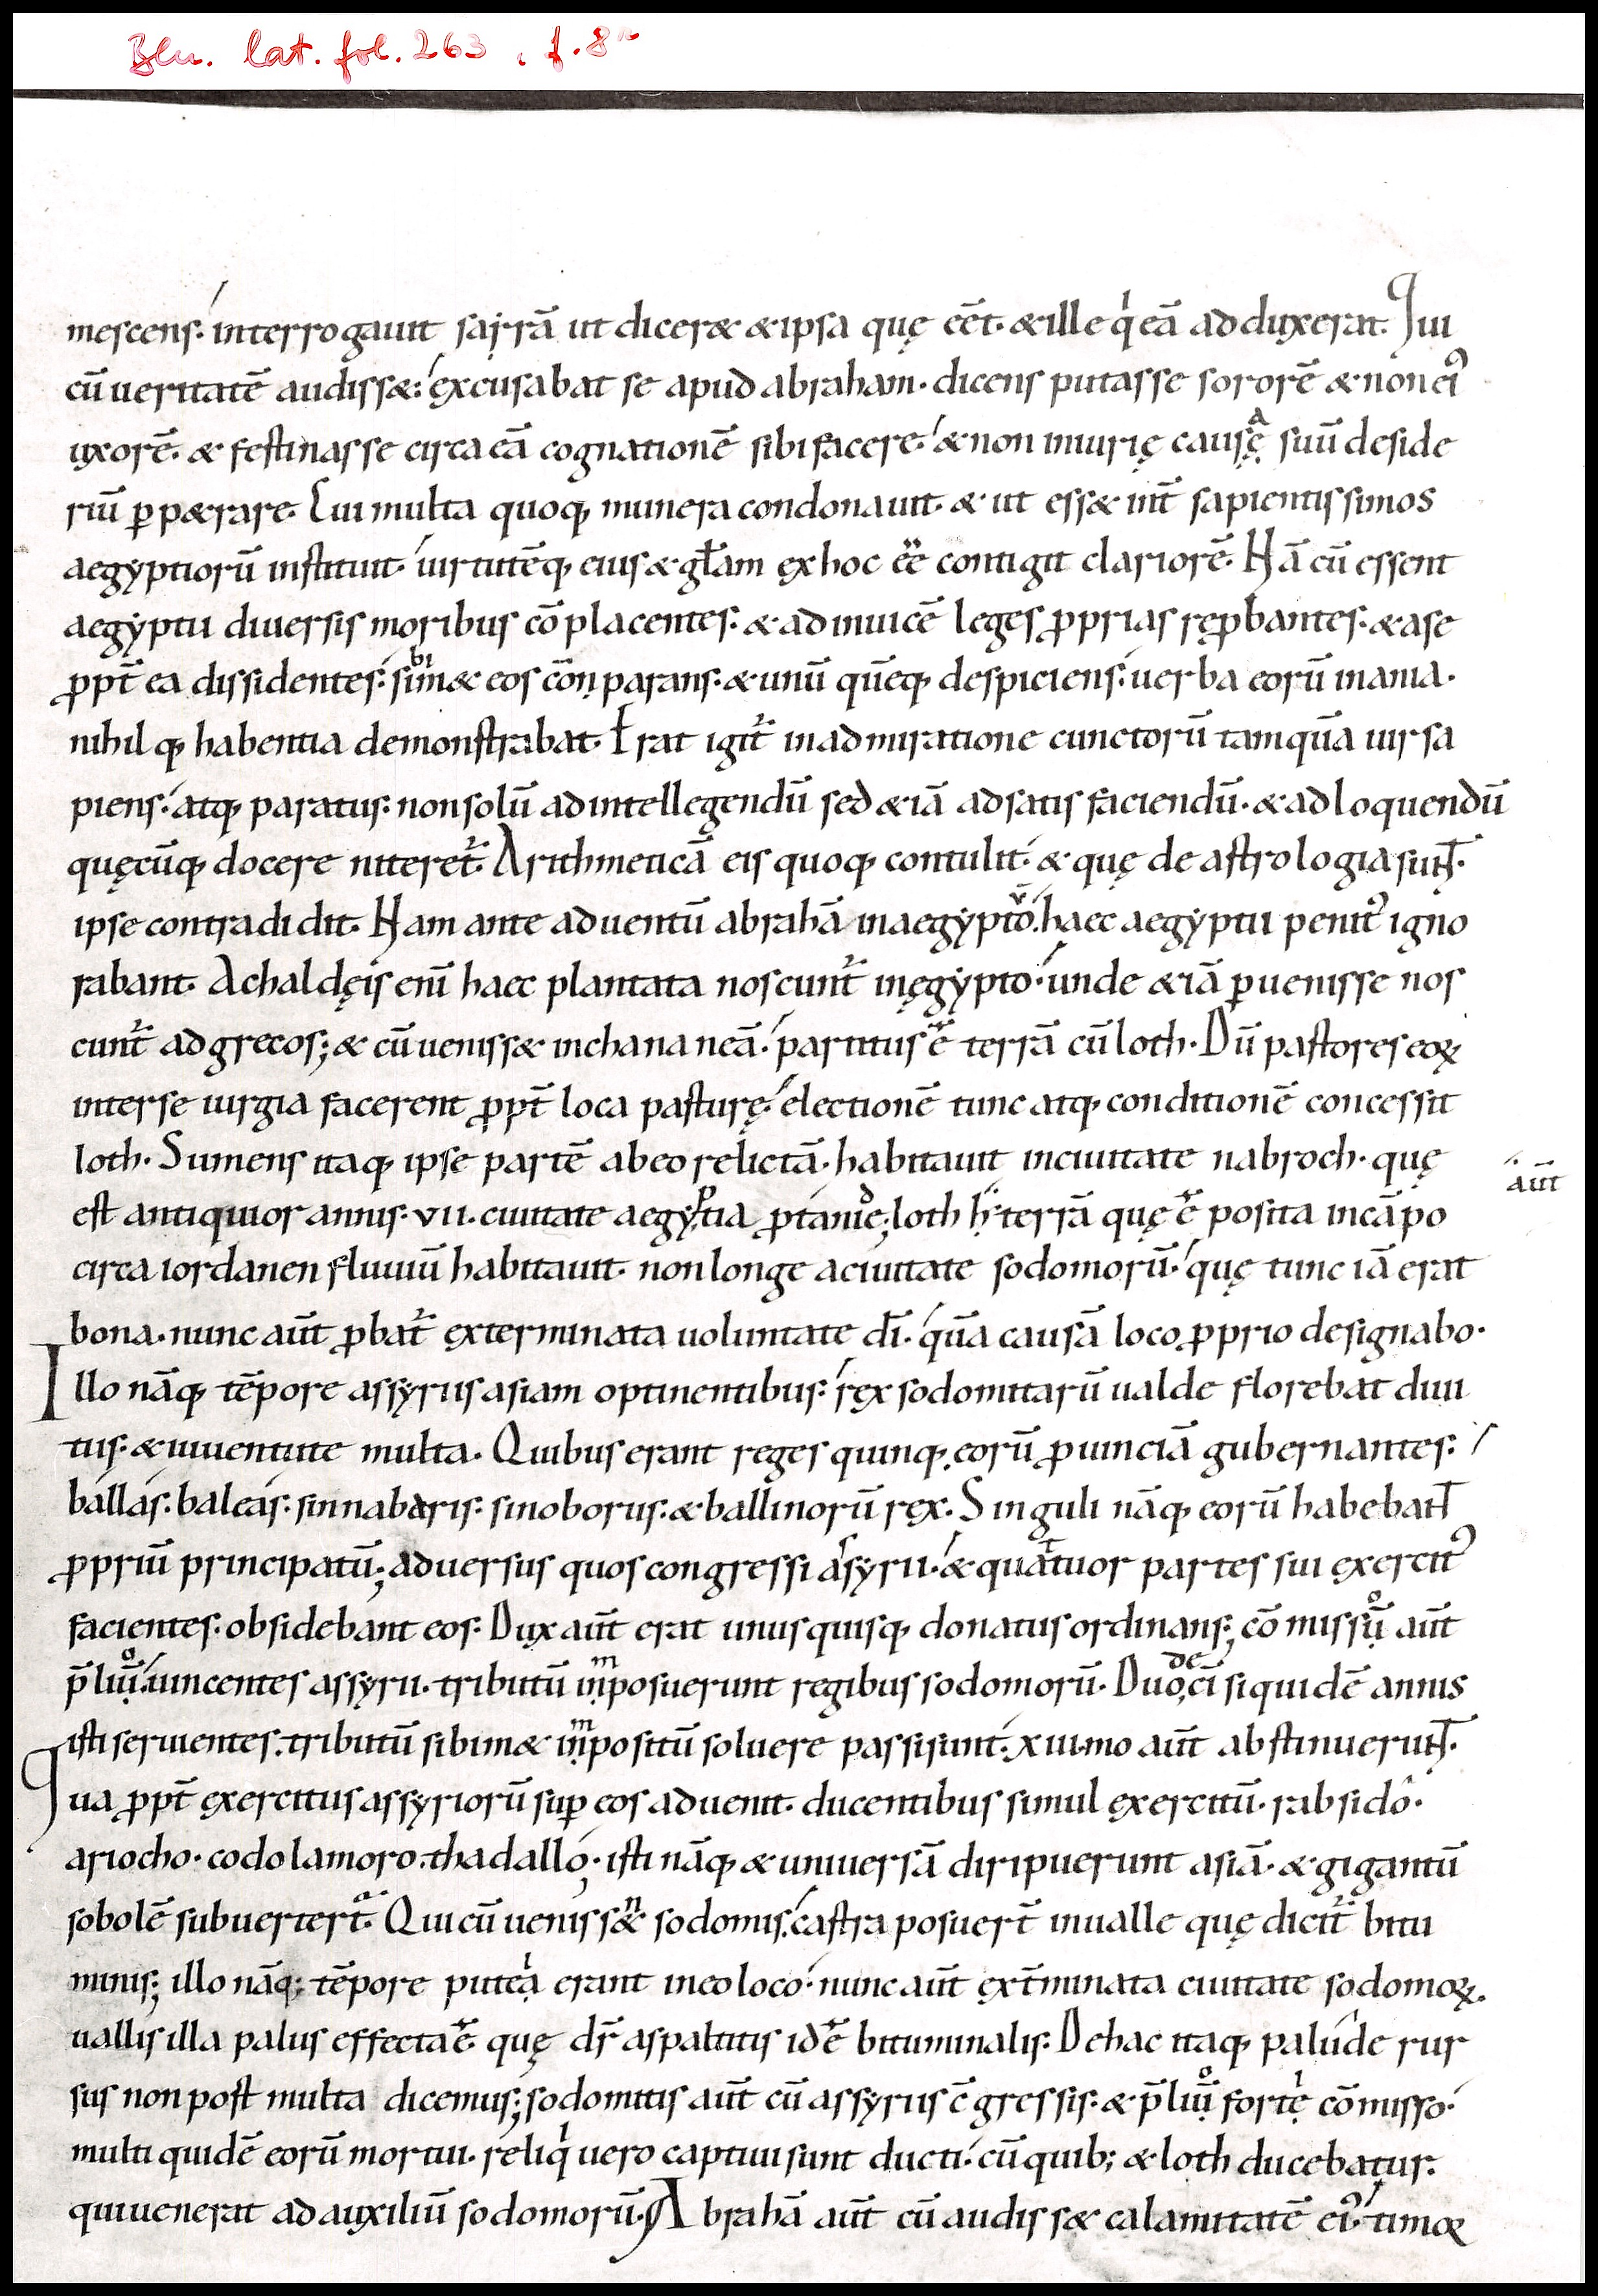 Bln. lat. fol. 263, f. 8r
mescens. interrogauit sarrā ut diceret & ipsa quę eēt. & ille qͥ eā adduxerat. Qui
cū ueritatē audisset: excusabat se apud abraham. dicens putasse sororē & non ei᾽
uxorē. & festinasse circa eā cognationē sibi facere. & non iniurię causę̄ᵃ suū deside
riū ꝑpetrare. Cui multa quoq; munera condonauit. & ut esset int̄ sapientissimos
aegyptiorū instituit. uirtutēq; eius & gl̄am ex hoc eē contigit clariorē. Nā cū essent
aegyptii diuersis moribus cōplacentes. & adinuicē leges ꝓprias reꝓbantes. & a se
ꝓpt̄ ea dissidentes. simͥet eos cōnparans. & unū quēq; despiciens. uerba eorū inania.
nihilq; habentia demonstrabat. Erat igit᷑ in admiratione cunctorū tamquā uir sa
piens. atq; paratus. non solū ad intellegendū sed & iā ad satis faciendū. & ad loquendū
quęcūq; docere niteret᷑. Arithmeticā eis quoq; contulit. & quę de astrologia sunt.
ipse contradidit. Nam ante aduentū abrahā in aegyptōᵛ. haec aegyptii penit᾽ igno
rabant. A chaldęis enī haec plantata noscunt᷑ in ęgypto. unde & iā ꝑuenisse nos
cunt᷑ ad grecos; & cū uenisset in chananeā. partitus ē terrā cū loth. Dū pastores eoꝝ
inter se iurgia facerent ꝓpt̄ loca pasturę. electionē tunc atq; conditionē concessit
loth. Sumens itaq; ipse partē ab eo relictā. habitauit in ciuitate nabroch. quę
est antiquior annis. vii. ciuitate aegyᵖtia ꝓtanideͩ; loth h̓ terrā quę ē posita in cāpo
aūt
circa iordanen fluuiū habitauit. non longe a ciuitate sodomorū. quę tunc iā erat
bona. nunc aūt ꝓbat᷑ exterminata uoluntate dī. quā causā loco ꝓprio designabo.
Illo nāq; tēpore assyriis asiam optinentibus. rex sodomitarū ualde florebat diui
tiis. & iuuentute multa. Quibus erant reges quinq; eorū ꝓuinciā gubernantes.
ballas. baleas. sinnabaris. sinoborus. & ballinorū rex. Singuli nāq; eorū habebant
ꝓpriū principatū; aduersus quos congressi aˢsyrii. & quaᵗtuor partes sui exercit᾽
facientes. obsidebant eos. Dux aūt erat unusquisq; donatus ordinans; cōmissūͦ aūt
p̄liūͦ. iuncentes assyrii. tributū inᵐposuerunt regibus sodomorū. Duoᵈᵉcī siquidē annis
isti seruientes. tributū sibimet inᵐpositū soluere passi sunt. xiii.mo aūt abstinuerunt.
Qua ꝓpt̄ exercitus assyriorū suꝑ eos aduenit. ducentibus simul exercitū. rabsido.
ariocho. codolamoro. thadallo; isti nāq; & uniuersā diripuerunt asiā. & gigantū
sobolē subuertert̄. Qui cū uenissⁿet sodomis. castra posuert̄ in ualle quę dicit᷑ bitu
minis; illo nāq; tēpore puteaͥ erant in eo loco. nunc aūt ext̄minata ciuitate sodomoꝝ.
uallis illa palus effecta ē. quę dr̄ aspaltitis id ē bituminalis. De hac itaq; palude rur
sus non post multa dicemus; sodomitis aūt cū assyriis c̄gressis. & p̄liūͦ forteͥ cōmisso.
multi quidē eorū mortui. reliqͥ uero captiui sunt ducti. cū quib; & loth ducebatur.
qui uenerat ad auxiliū sodomorū. Abrahā aūt cū audisset calamitatē ei᾽. timoꝝ